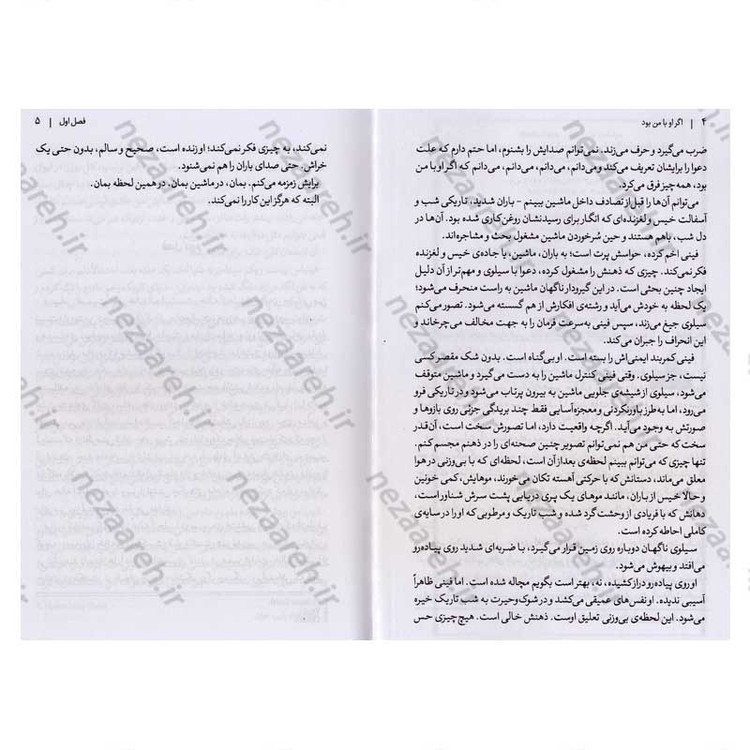 ۴ | اگر او با من بود
ضرب می‌گیرد و حرف می‌زند. نمی‌توانم صدایش را بشنوم، اما حتم دارم که علت
دعوا را برایشان تعریف می‌کند و می‌دانم، می‌دانم، می‌دانم، می‌دانم که اگر او با من
بود، همه‌چیز فرق می‌کرد.
می‌توانم آن‌ها را قبل از تصادف داخل ماشین ببینم - باران شدید، تاریکی شب و
آسفالت خیس و لغزنده‌ای که انگار برای رسیدنشان روغن‌کاری شده بود. آن‌ها در
دل شب، باهم هستند و حین سُر خوردن ماشین مشغول بحث و مشاجره‌اند.
فینی اخم کرده، حواسش پرت است؛ به باران، ماشین، یا جاده‌ی خیس و لغزنده
فکر نمی‌کند. چیزی که ذهنش را مشغول کرده، دعوا با سیلوی و مهم‌تر از آن دلیل
ایجاد چنین بحثی است. در این گیرودار ناگهان ماشین به راست منحرف می‌شود؛
یک لحظه به خودش می‌آید و رشته‌ی افکارش از هم گسسته می‌شود. تصور می‌کنم
سیلوی جیغ می‌زند، سپس فینی به‌سرعت فرمان را به جهت مخالف می‌چرخاند و
این انحراف را جبران می‌کند.
فینی کمربند ایمنی‌اش را بسته است. او بی‌گناه است. بدون شک مقصر کسی
نیست، جز سیلوی. وقتی فینی کنترل ماشین را به دست می‌گیرد و ماشین متوقف
می‌شود، سیلوی از شیشه‌ی جلویی ماشین به بیرون پرتاب می‌شود و در تاریکی فرو
می‌رود، اما به‌طرز باورنکردنی و معجزه‌آسایی فقط چند بریدگی جزئی روی بازوها و
صورتش به وجود می‌آید. اگرچه واقعیت دارد، اما تصورش سخت است، آن‌قدر
سخت که حتی من هم نمی‌توانم تصویر چنین صحنه‌ای را در ذهنم مجسم کنم.
تنها چیزی که می‌توانم ببینم لحظه‌ی بعد از آن است، لحظه‌ای که با بی‌وزنی در هوا
معلق می‌ماند، دستانش که با حرکتی آهسته تکان می‌خورند، موهایش، کمی خونین
و حالا خیس از باران، مانند موهای یک پری دریایی پشت سرش شناور است،
دهانش که با فریادی از وحشت گرد شده و شب تاریک و مرطوبی که او را در سایه‌ی
کاملی احاطه کرده است.
سیلوی ناگهان دوباره روی زمین قرار می‌گیرد، با ضربه‌ای شدید روی پیاده‌رو
می‌افتد و بیهوش می‌شود.
او روی پیاده‌رو دراز کشیده، نه، بهتر است بگویم مچاله شده است. اما فینی ظاهراً
آسیبی ندیده. او نفس‌های عمیقی می‌کشد و در شوک و حیرت به شب تاریک خیره
می‌شود. این لحظه‌ی بی‌وزنی تعلیق اوست. ذهنش خالی است. هیچ‌چیزی حس
فصل اول | ۵
نمی‌کند، به چیزی فکر نمی‌کند؛ او زنده است، صحیح و سالم، بدون حتی یک
خراش. حتی صدای باران را هم نمی‌شنود.
برایش زمزمه می‌کنم. بمان، در ماشین بمان. در همین لحظه بمان.
البته که هرگز این کار را نمی‌کند.
nezaareh.ir
nezaareh.ir
nezaareh.ir
nezaareh.ir
nezaareh.ir
nezaareh.ir